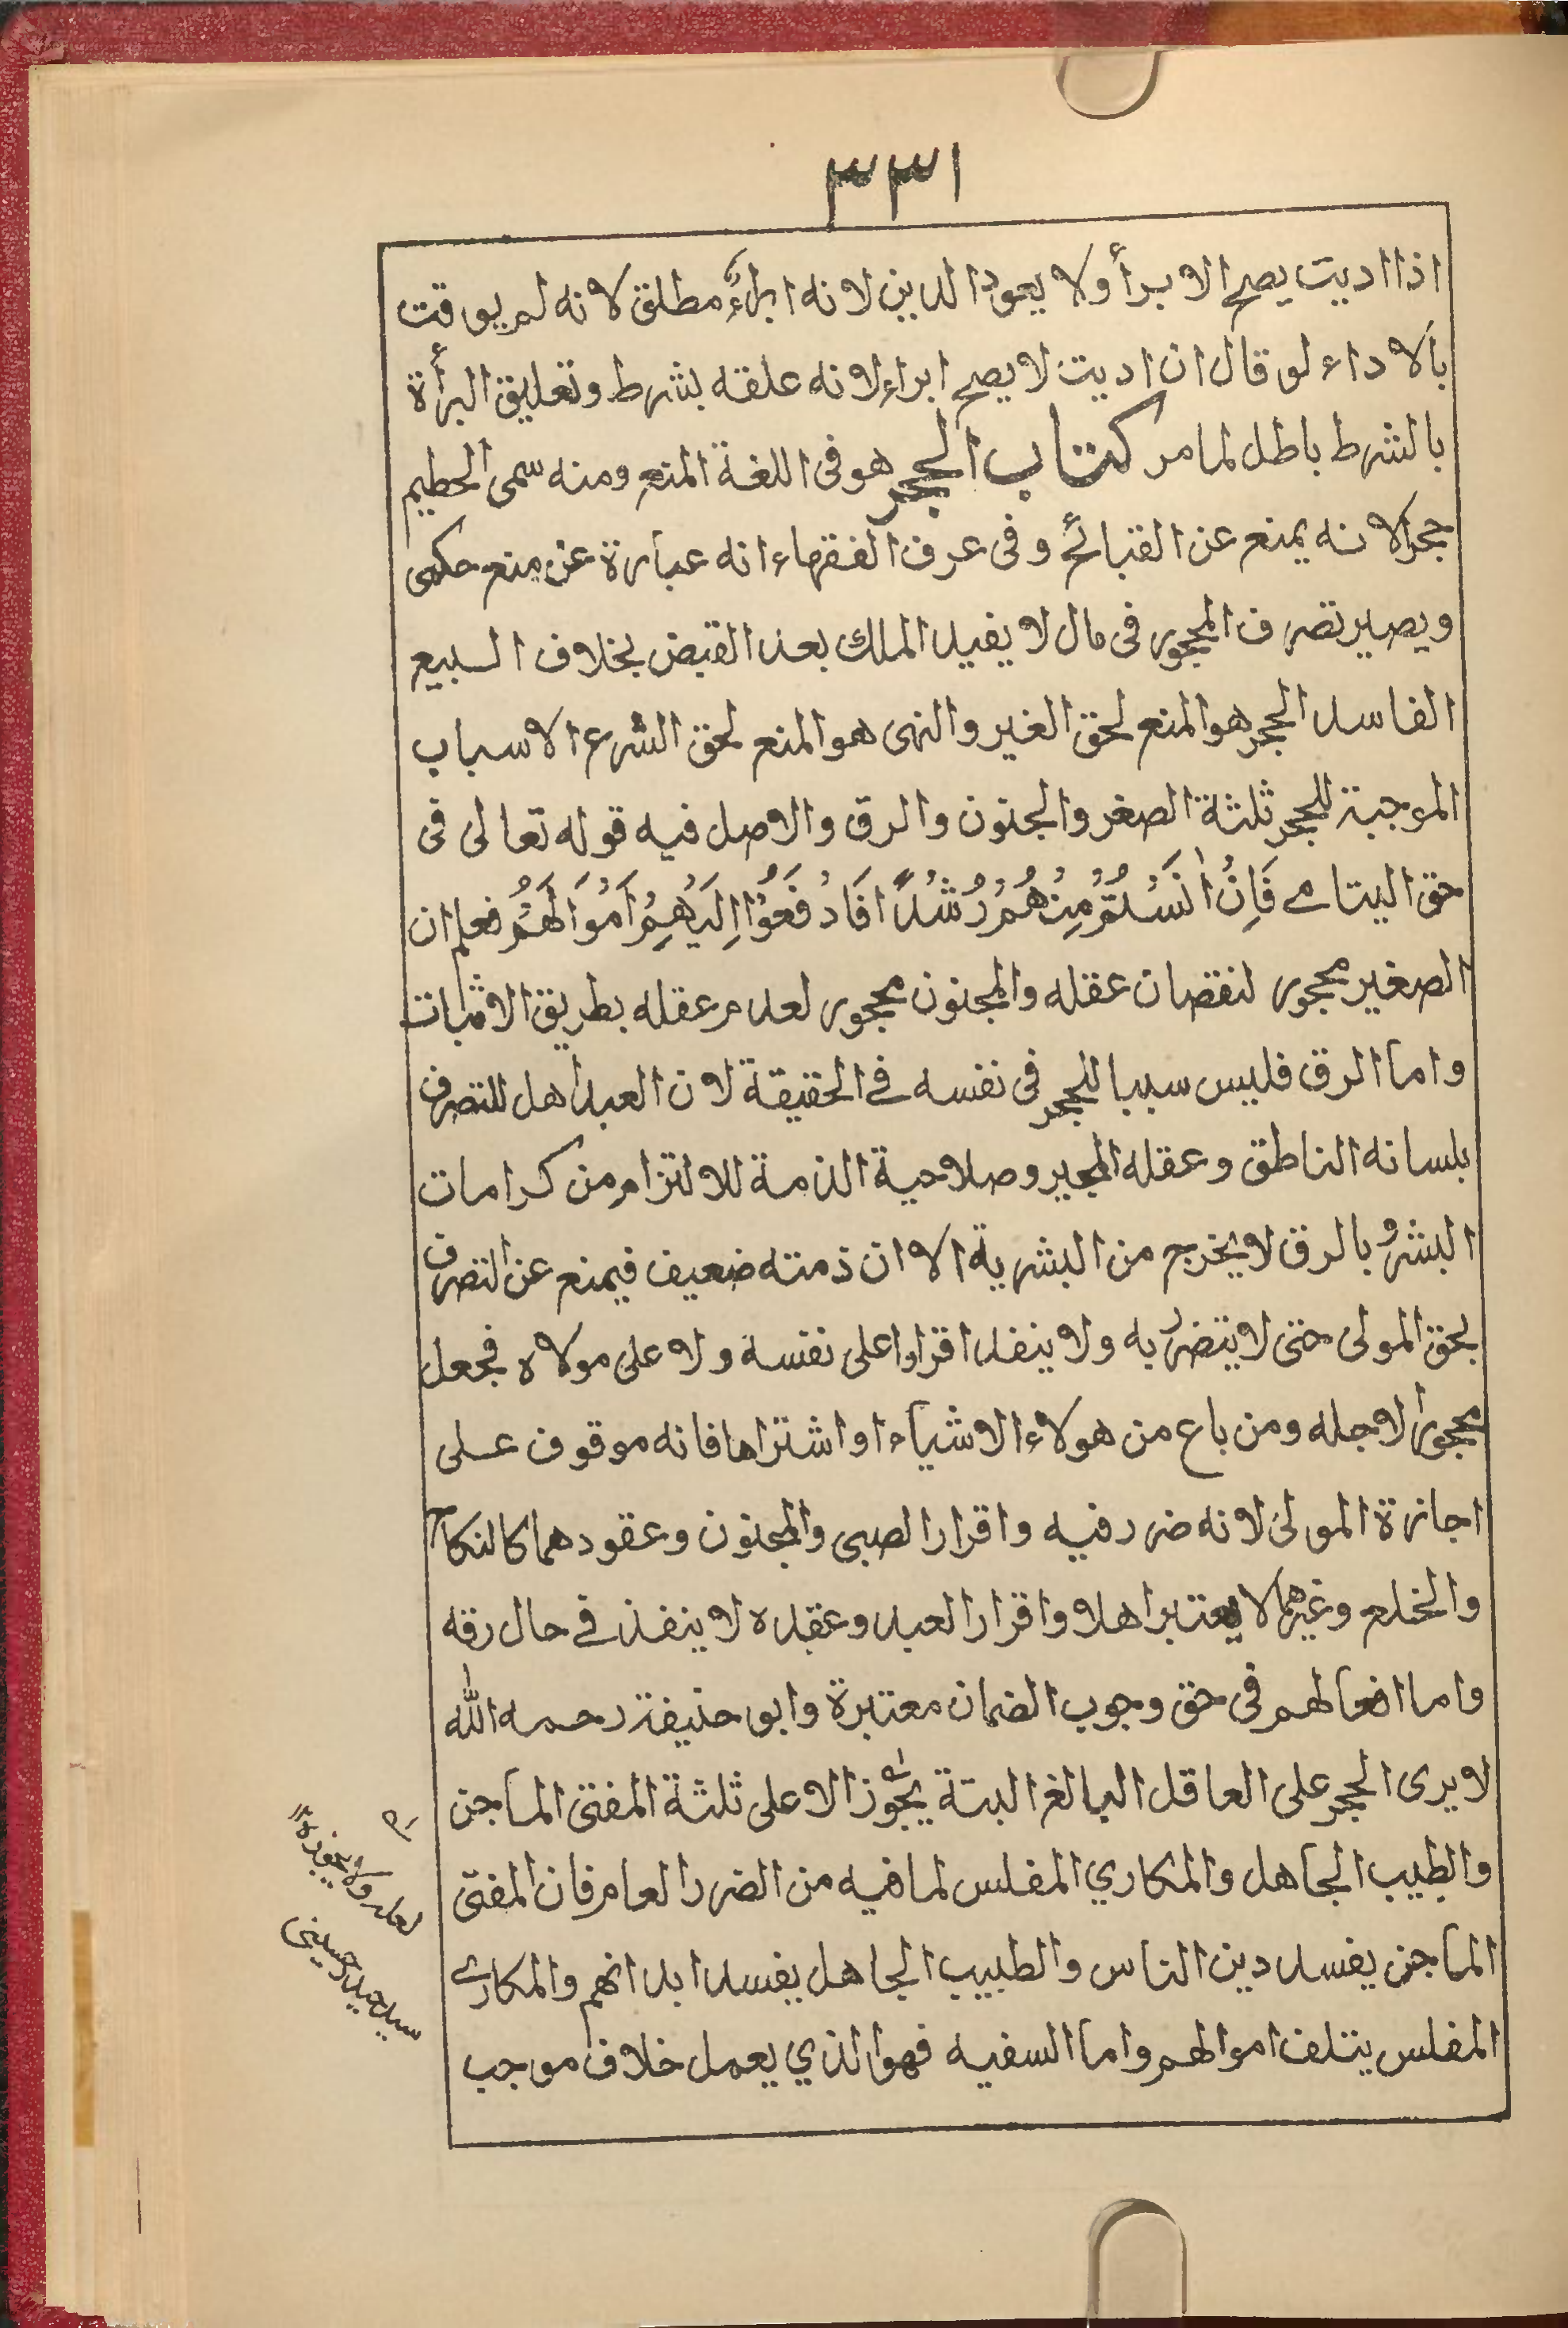 ٣٣١
اذا اديت يصح الابرأ ولا يعود الدين لانه ابراءٌ مطلق لانه لم يوقت
بالاداء لو قال ان اديت لا يصح ابراء لانه علقه بشرط وتعليق البرأة
بالشرط باطل لما مر كتاب الحجر هو فى اللغة المنع ومنه سمى الحطيم
حجرا لانه يمنع عن القبائح وفى عرف الفقهاء انه عبارة عن منع حكمى
ويصير تصرف المحجور فى مال لا يفيد الملك بعد القبض بخلاف البيع
الفاسد الحجر هو المنع لحق الغير والنهى هو المنع لحق الشرع الاسباب
الموجبة للحجر ثلثة الصغر والجنون والرق والاصل فيه قوله تعالى فى
حق اليتامے فَاِنْ اٰنَسْتُمْ مِنْهُمْ رُشْدًا فَادْفَعُوْا اِلَيْهِمْ اَمْوَالَهُمْ فعلم ان
الصغير محجور لنقصان عقله والمجنون محجور لعدم عقله بطريق الاثبات
واما الرق فليس سببا للحجر فى نفسه فے الحقيقة لان العبد اهل للتصرف
بلسانه الناطق وعقله المجير وصلاحية الذمة للالتزام من كرامات
البشر و بالرق لا يخرج من البشرية الا ان ذمته ضعيف فيمنع عن التصرف
لحق المولى حتى لا يتضرر به ولا ينفد اقراوا على نفسه ولا على مولاه فجعل
محجورا لاجله ومن باع من هولاء الاشياء او اشتراها فانه موقوف على
اجازة المولى لانه ضرر فيه واقرار الصبى والمجنون وعقودهما كالنكاح
والخلع وغيرهما لا يعتبر اهلا واقرار العبد وعقده لا ينفذ فے حال رقه
واما افعالهم فى حق وجوب الضمان معتبرة وابو حنيفة رحمه الله
لا يرى الحجر على العاقل البالغ البتة يجوز الا على ثلثة المفتى الماجن
والطبيب الجاهل والمكاري المفلس لما فيه من الضرر العام فان المفتى
الماجن يفسد دين الناس والطبيب الجاهل يفسد ابدانهم والمكارے
المفلس يتلف اموالهم واما السفيه فهو الذي يعمل خلاف موجب
لعله ولا يجوز ١٢
سيد حيدر حسينى